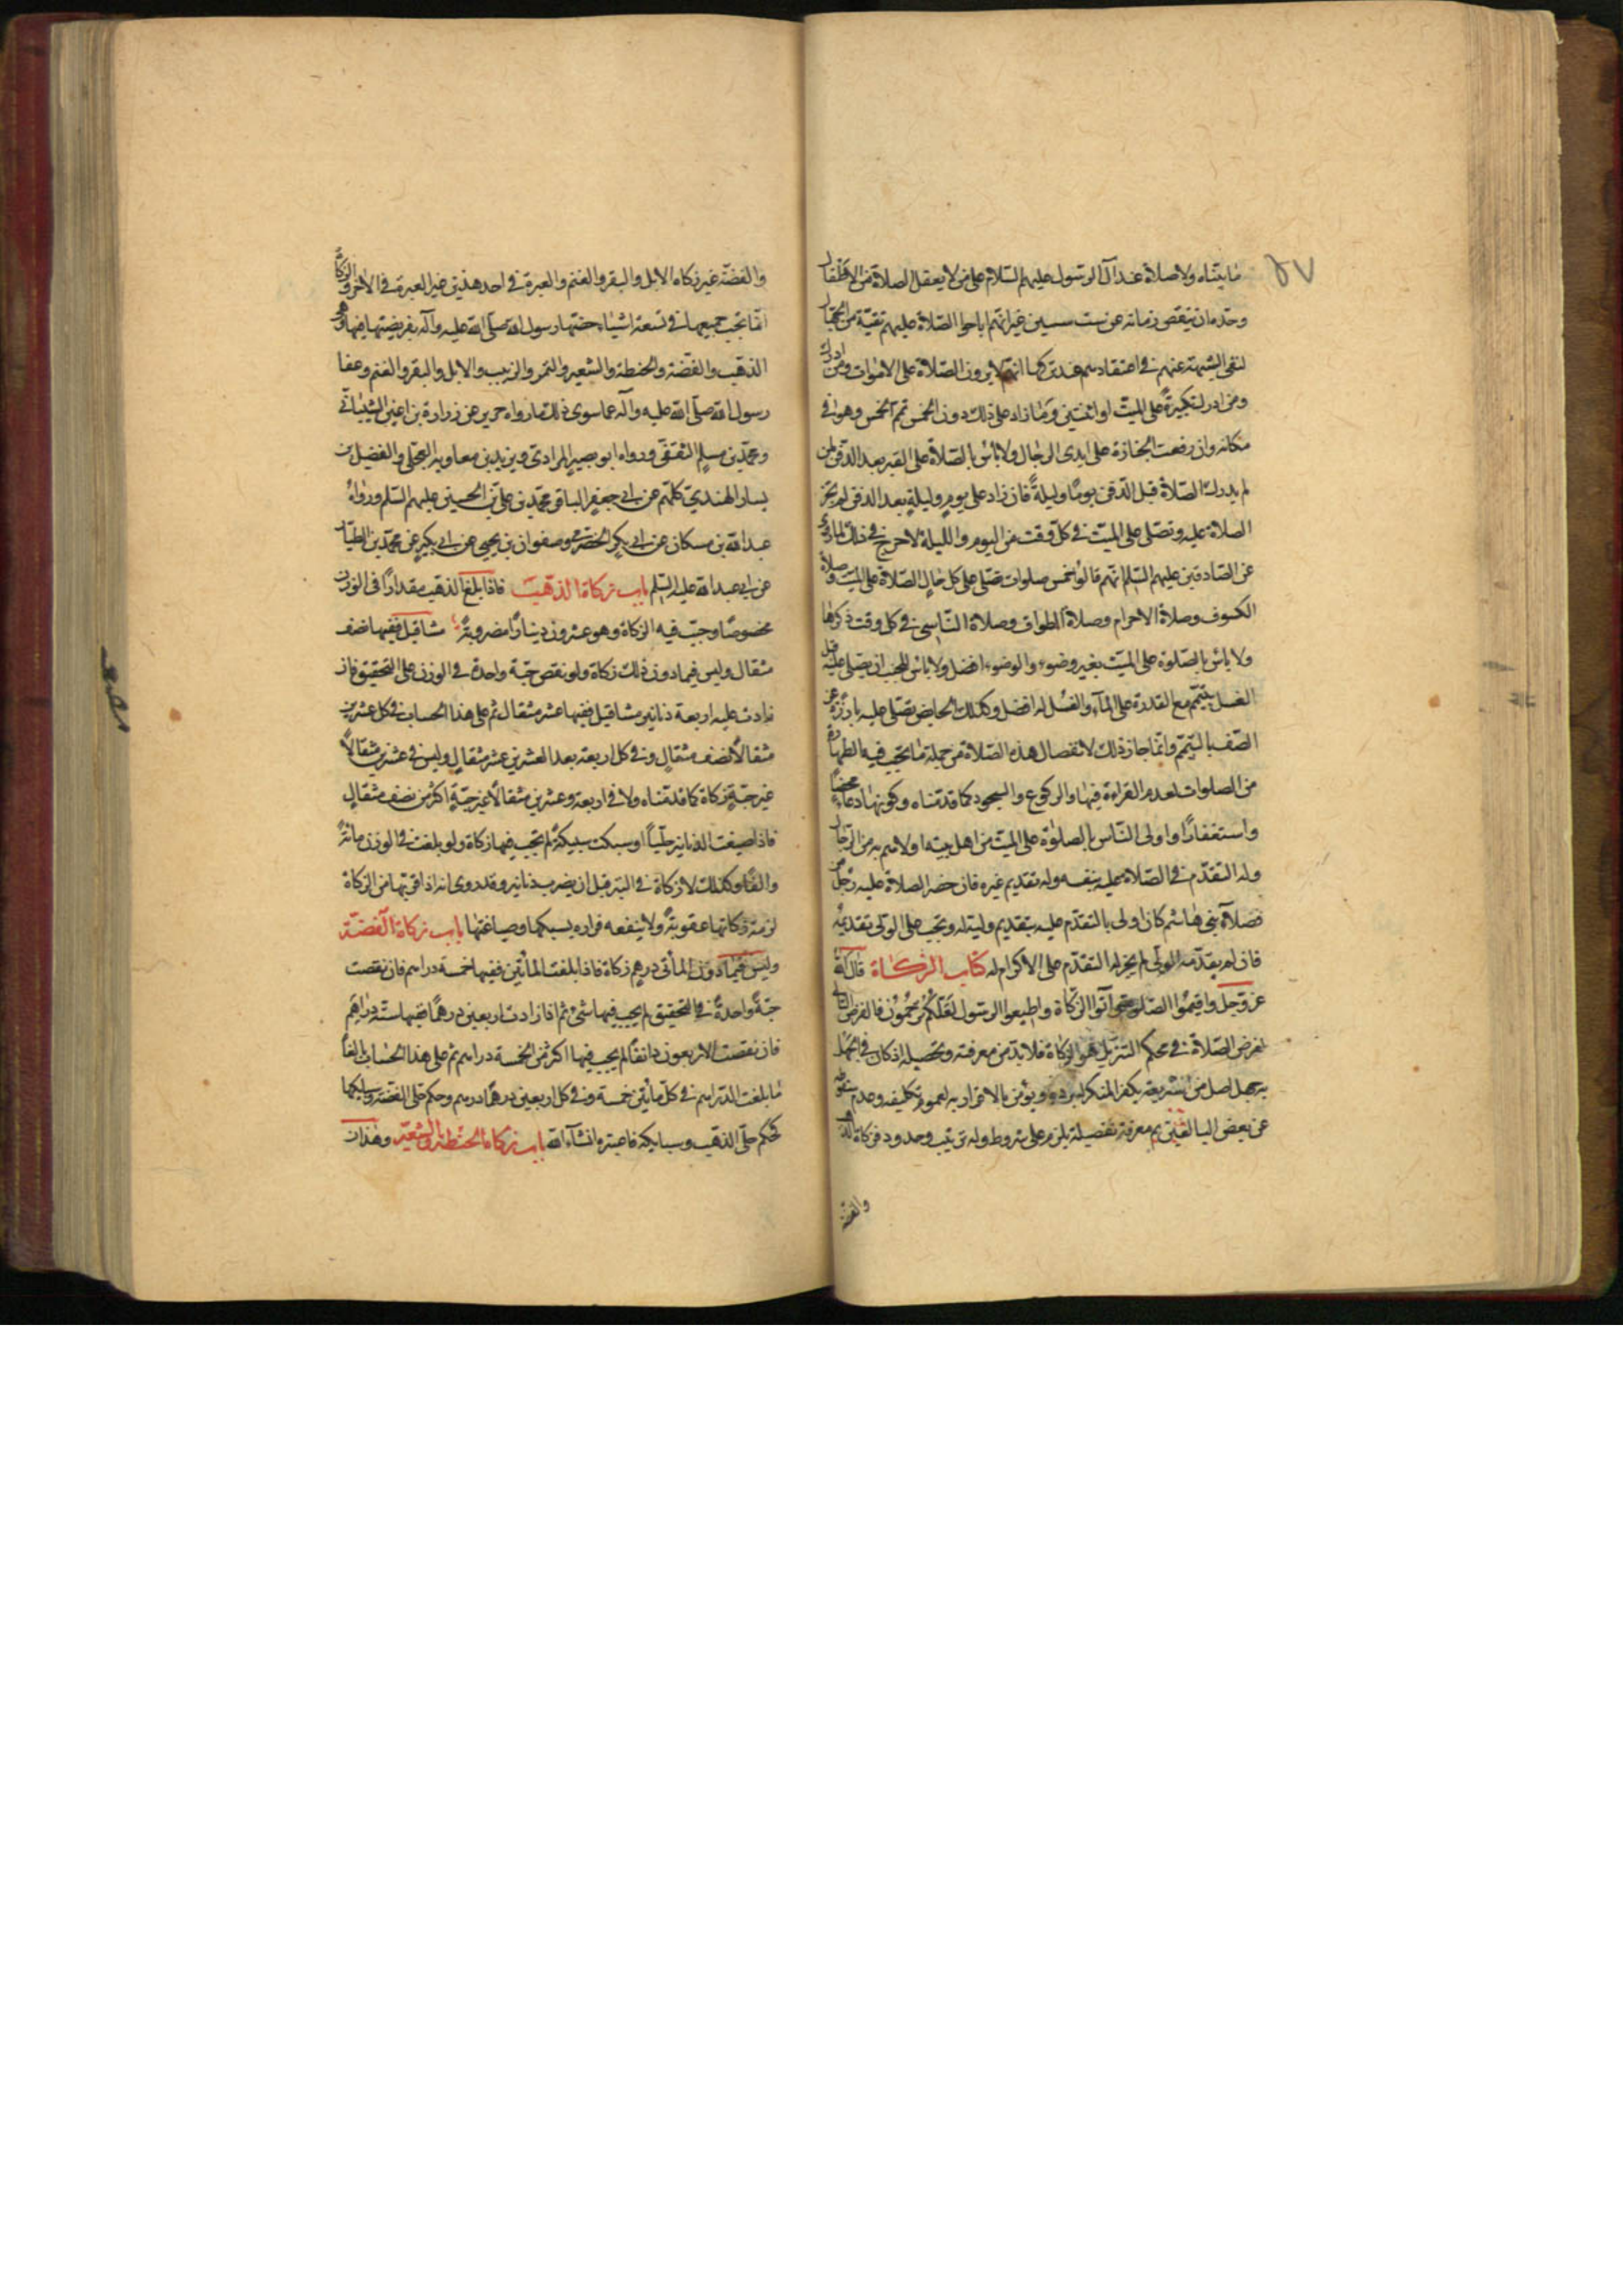 ٥٧
ما بيناه ولا صلاة عند آل الرسول عليهم السلام على من لا يعقل الصلاة من الاطفال
وحده ان ينقص زمانه عن ست سنين غير انهم اباحوا الصلاة عليهم تقية من الجهال
لنفى الشبهة عنهم فى اعتقادهم عند تركها انهم لا يرون الصلاة على الاموات ومن ادرك
ومن ادرك تكبيرة على الميت او اثنتين وما زاد على ذلك دون الخمس تمم الخمس وهو فى
مكانه وان رفعت الجنازة على ايدى الرجال ولا بأس بالصلاة على القبر بعد الدفن لمن
لم يدرك الصلاة قبل الدفن يوما وليلة فان زاد على يوم وليلة بعد الدفن لم يجز
الصلاة عليه وتصلى على الميت فى كل وقت من اليوم والليلة لا حرج فى ذلك لما روى
عن الصادقين عليهم السلم انهم قالوا خمس صلوات تصلى على كل حال الصلاة على الميت وصلاة
الكسوف وصلاة الاحرام وصلاة الطواف وصلاة الناسى فى كل وقت ذكرها
ولا باس بالصلوة على الميت بغير وضوء والوضوء افضل ولا باس للجنب ان يصلى عليه قبل
الغسل يتيمم مع القدرة على الماء والغسل له افضل وكذلك الحايض تصلى عليه بارزة عن
الصف بالتيمم وانما جاز ذلك لانفصال هذه الصلاة من جملة ما يجب فيه الطهارة
من الصلوات لعدم القراءة فيها والركوع والسجود كما قدمناه وكونها دعاء محضا
واستغفارا واولى الناس بالصلوة على الميت من اهل بيته اولاهم به من الرجال
وله التقدم فى الصلاة عليه بنفسه وله تقديم غيره فان حضر الصلاة عليه رجل من
فضلاء بنى هاشم كان اولى بالتقدم عليه بتقديم وليه له ويجب على الولى تقديمه
فان لم يقدمه الولى لم يجز له التقدم على الاكرام له كتاب الزكاة قال الله
عز وجل واقيموا الصلوة وآتوا الزكاة واطيعوا الرسول لعلكم ترحمون فالفرض التالى
لفرض الصلاة فى محكم التنزيل هو الزكاة فلا بد من معرفته وتحصيله اذ كان فى الجهل
به جهل اصل من شريعة يكفر المنكر لها برده ويؤمن بالاقرار به لعموم تكليفه وعدم سقوطه
عن بعض البالغين ثم معرفة تفصيله يلزم على شروط وله ترتيب وحدود فزكاة الذهب
والفضة
والفضة غير زكاه الابل والبقر والغنم والعبرة فى احد هذين غير العبرة فى الاخر والزكاة
انما تجب جميعها فى تسعة اشياء خصها رسول الله صلى الله عليه وآله بفريضتها فيها وهى
الذهب والفضة والحنطة والشعير والتمر والزبيب والابل والبقر والغنم وعفا
رسول الله صلى الله عليه وآله عما سوى ذلك فما رواه حريز عن زرارة بن اعين الشيبانى
ومحمد بن مسلم الثقفى ورواه ابو بصير المرادى وبريد بن معاوية العجلى والفضيل بن
يسار الهندى كلهم عن ابى جعفر الباقر محمد بن على بن الحسين عليهم السلم ورواه
عبد الله بن مسكان عن ابى بكر الحضرمى وصفوان بن يحيى عن ابى بكير عن محمد بن الطيار
عن ابى عبد الله عليه السلم باب زكاة الذهب فاذا بلغ الذهب مقدارا فى الوزن
مخصوصا وجب فيه الزكاة وهو عشرون دينارا مضروبة مثاقيل ففيها نصف
مثقال وليس فيما دون ذلك زكاة ولو نقص حبة واحدة فى الوزن على التحقيق فان
زادت عليه اربعة دنانير مثاقيل ففيها عشر مثقال ثم على هذا الحساب فى كل عشرين
مثقالا نصف مثقال وفى كل اربعة بعد العشرين عشر مثقال وليس فى عشرين مثقالا
غير حبة زكاة كما قدمناه ولا فى اربعة وعشرين مثقالا غير حبة اكثر من نصف مثقال
فاذا صيغت الدنانير حليا او سبكت سبيكة لم تجب فيها زكاة ولو بلغت فى الوزن مائة
والفا وكذلك لا زكاة فى التبر قبل ان يضرب دنانير وقد روى انه اذا فر بها من الزكاة
لزمته زكاتها عقوبة ولا ينفعه فراره بسبكها وصياغتها باب زكاة الفضة
وليس فيما دون المأتى درهم زكاة فاذا بلغت المأتين ففيها خمسة دراهم فان نقصت
حبة واحدة فى التحقيق لم يجب فيها شئ ثم اذا زادت اربعين درهما ففيها ستة دراهم
فان نقصت الاربعون دانقا لم يجب فيها اكثر من الخمسة دراهم ثم على هذا الحساب بالغا
ما بلغت الدراهم فى كل مأتين خمسة وفى كل اربعين درهما درهم وحكم حلى الفضة وسبايكها
كحكم حلى الذهب وسبايكه فاعتبره انشاء الله باب زكاة الحنطة والشعير وهذان